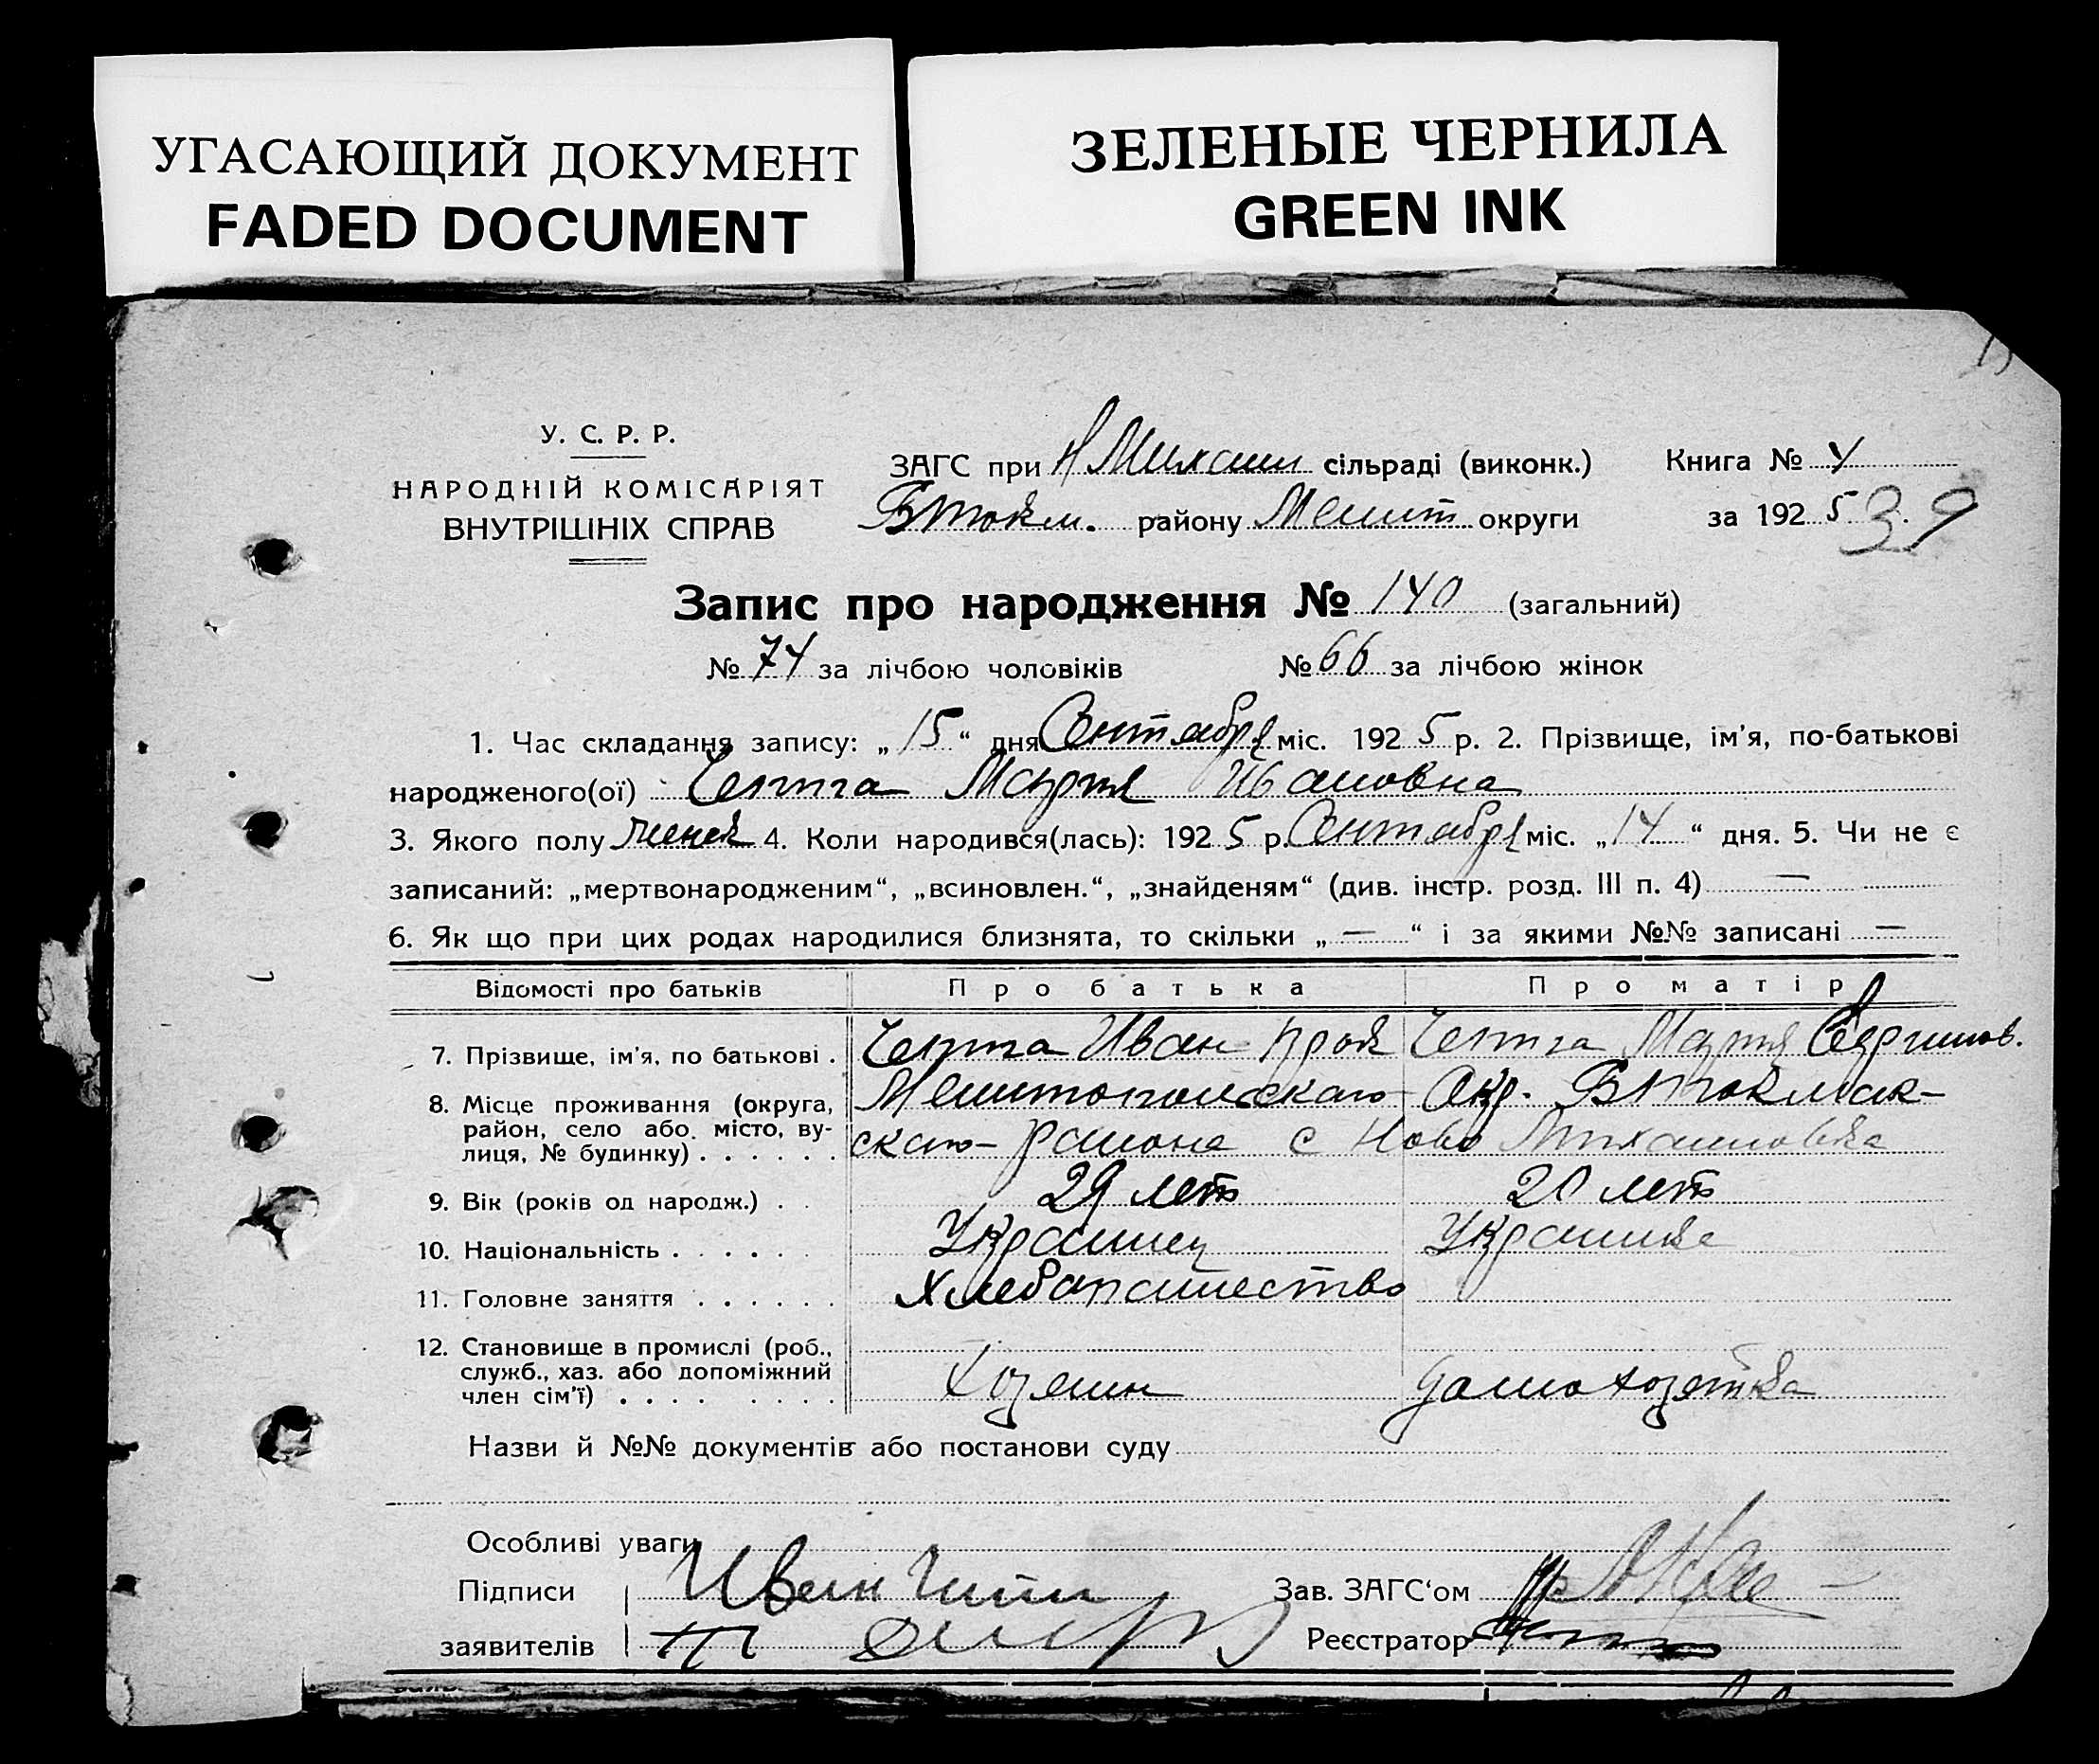 УГАСАЮЩИЙ ДОКУМЕНТ
FADED DOCUMENT
ЗЕЛЕНЫЕ ЧЕРНИЛА
GREEN INK
У. С. Р. Р.
НАРОДНІЙ КОМІСАРІЯТ
ВНУТРІШНІХ СПРАВ
ЗАГС при Н Михайл сільраді (виконк.) Книга № 4
Втокм. району Мелит округи за 192 5 39
Запис про народження № 140 (загальний)
№ 74 за лічбою чоловіків № 66 за лічбою жінок
1. Час складання запису: „ 15 “ дня Сентября міс. 192 5 р. 2. Прізвище, ім'я, по-батькові
народженого(ої) Мария Ивановна
3. Якого полу женск 4. Коли народився(лась): 192 5 р. Сентября міс. „ 14 “ дня. 5. Чи не є
записаний: „мертвонародженим“, „всиновлен.“, „знайденям“ (див. інстр. розд. III п. 4) —
6. Як що при цих родах народилися близнята, то скільки „ — “ і за якими №№ записані —
Відомості про батьків Про батька Про матір
7. Прізвище, ім'я, по батькові . Иван Мария
8. Місце проживання (округа, Мелитопольскаго Окр. Втокмак-
район, село або місто, ву- скаго района с Ново Михайловка
лиця, № будинку) . . . . . .
9. Вік (років од народж.) . . 29 лет 20 лет
10. Національність . . . . . . Украинец Украинка
11. Головне заняття . . . . . . Хлебопашество
12. Становище в промислі (роб.,
служб., хаз. або допоміжний Хозяин домохозяйка
член сім'ї) . . . . . . . .
Назви й №№ документів або постанови суду
Особливі уваги
Підписи Иван Зав. ЗАГС'ом
заявителів Реєстратор